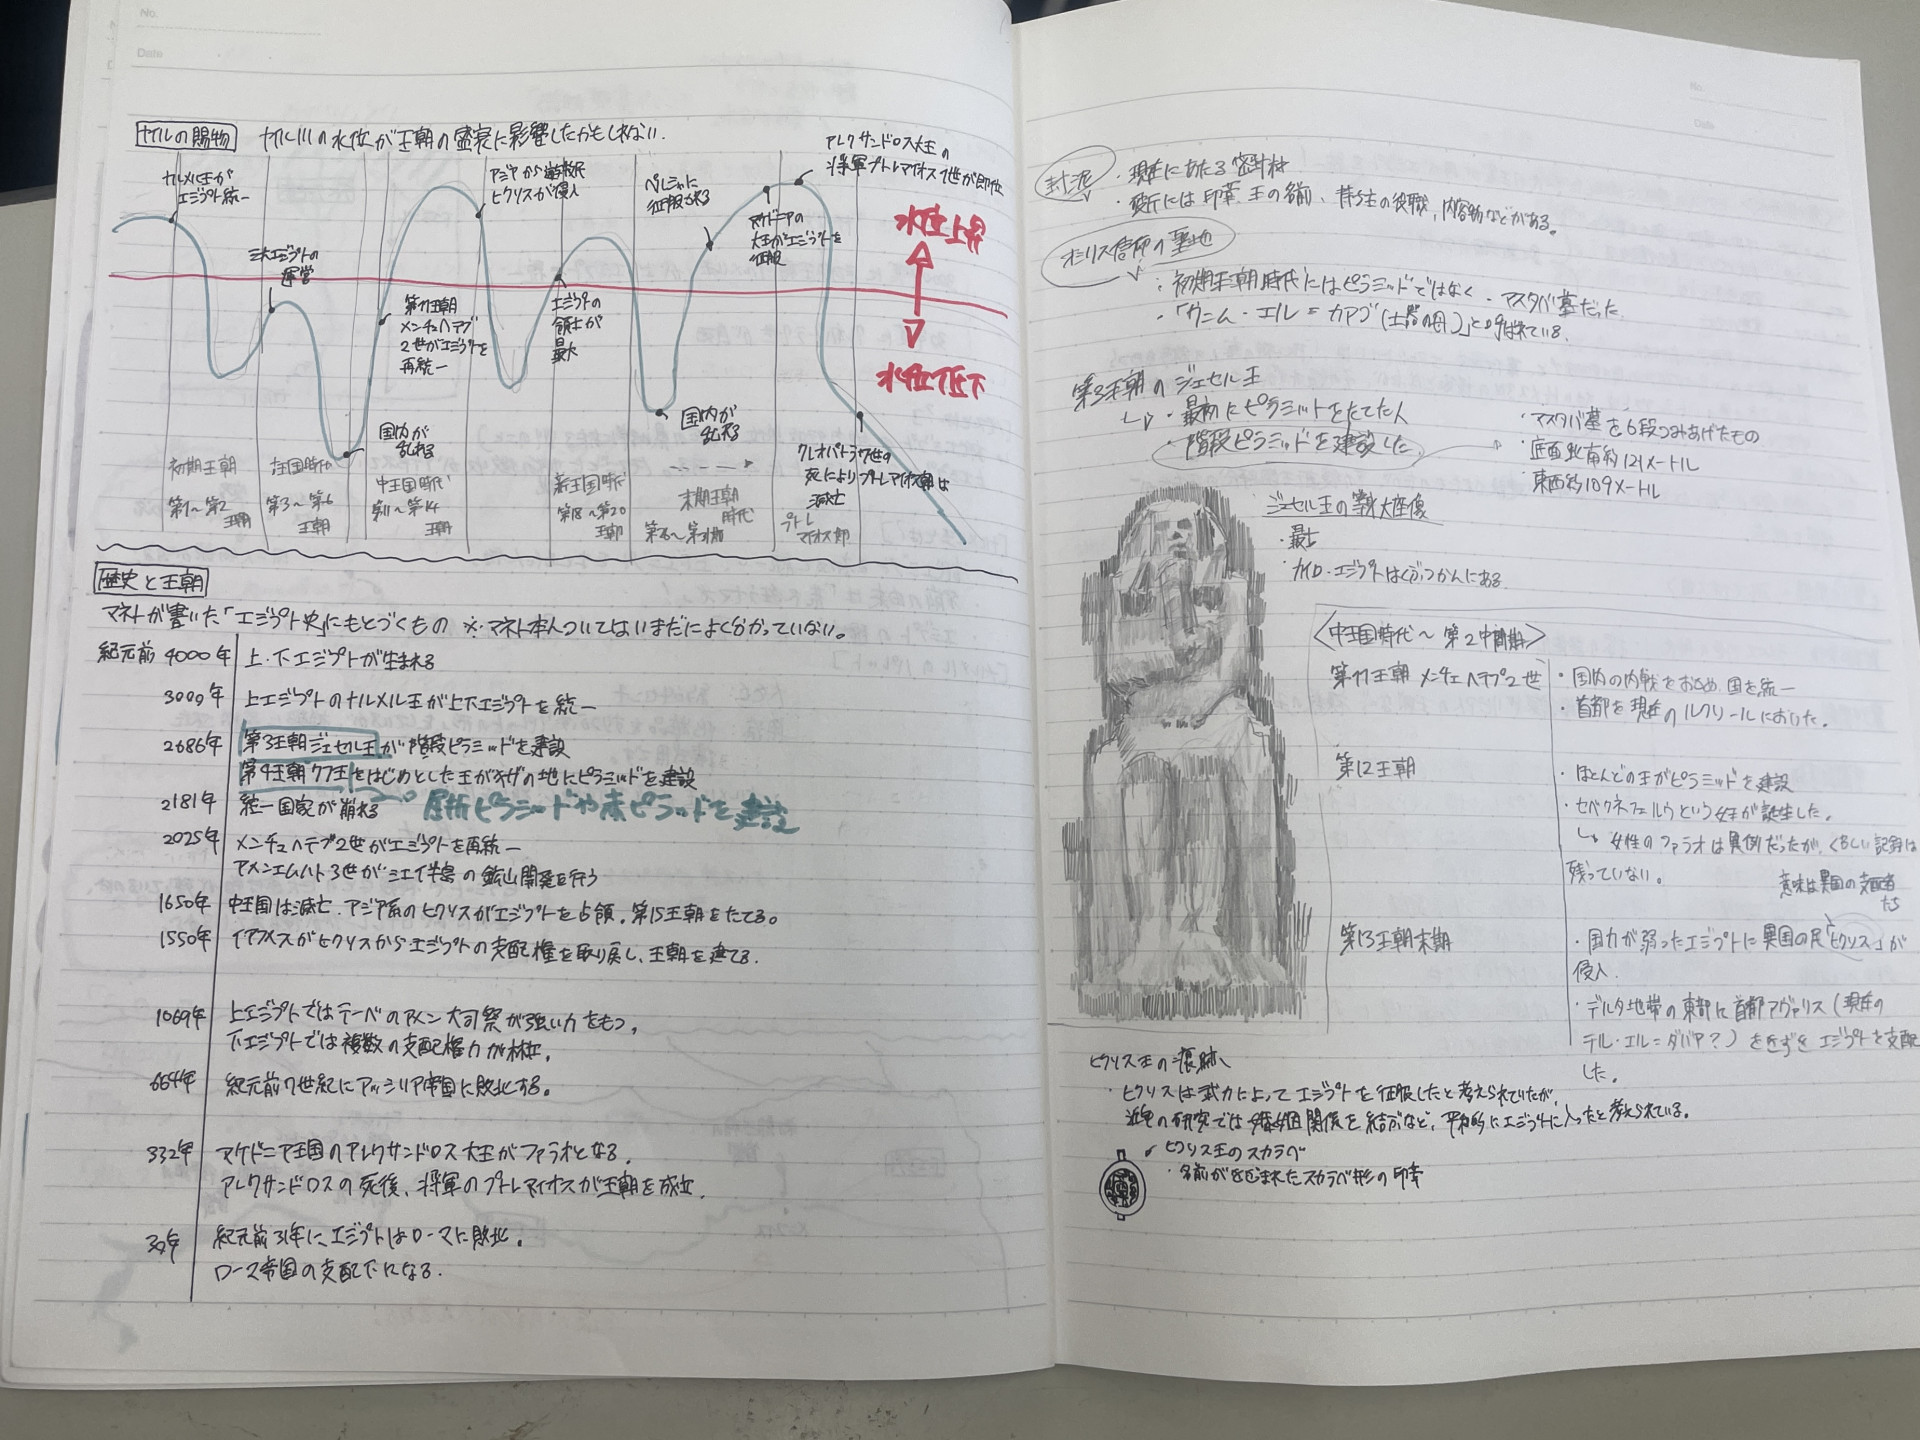 No.
Date
ナイルの賜物 ナイル川の水位が王朝の盛衰に影響したかもしれない.
ナルメル王が
エジプト統一
三大エジプトの
運営
国内が
乱れる
第11王朝
メンチュヘテプ
2世がエジプトを
再統一
アジアから遊牧民
ヒクソスが侵入
エジプトの
領土が
最大
ペルシャに
征服される
国内が
乱れる
マケドニアの
大王がエジプトを
征服
アレクサンドロス大王の
将軍プトレマイオス1世が即位
クレオパトラ7世の
死によりプトレマイオス朝は
滅亡
水位上昇
水位低下
初期王朝
第1〜第2
王朝
古王国時代
第3〜第6
王朝
中王国時代
第11〜第14
王朝
新王国時代
第18〜第20
王朝
末期王朝
時代
プトレ
マイオス朝
歴史と王朝
マネトが書いた「エジプト史」にもとづくもの ※マネト本人ついてはいまだによく分かっていない。
紀元前 4000年 上・下エジプトが生まれる
3000年 上エジプトのナルメル王が上下エジプトを統一
2686年 第3王朝ジェセル王が階段ピラミッドを建設
第4王朝クフ王をはじめとした王がギザの地にピラミッドを建設
2181年 統一国家が崩れる 屈折ピラミッドや赤ピラミッドを建設
2025年 メンチュヘテプ2世がエジプトを再統一
アメンエムハト3世がシナイ半島の鉱山開発を行う
1650年 中王国は滅亡.アジア系のヒクソスがエジプトを占領,第15王朝をたてる。
1550年 イアフメスがヒクソスからエジプトの支配権を取り戻し、王朝を建てる.
1069年 上エジプトではテーベのアメン大司祭が強い力をもつ,
下エジプトでは複数の支配権力が林立.
664年 紀元前7世紀にアッシリア帝国に敗北する。
332年 マケドニア王国のアレクサンドロス大王がファラオとなる.
アレクサンドロスの死後、将軍のプトレマイオスが王朝を成立.
30年 紀元前31年に、エジプトはローマに敗北.
ローマ帝国の支配下になる.
封泥
・現在にあたる密封材
・破片には印章.王の名前、持ち主の役職,内容物などがある。
オシリス信仰の聖地
・初期王朝時代にはピラミッドではなく・マスタバ墓だった
・「ウンム・エル=カアブ(土器の母)」と呼ばれている.
第3王朝のジェセル王
・最初にピラミッドをたてた人
・階段ピラミッドを建設した.
・マスタバ墓を6段つみあげたもの
・底面北南約121メートル
・東西約109メートル
ジェセル王の等身大座像
・最古
・カイロ・エジプトはくぶつかんにある
〈中王国時代〜第2中間期〉
第11王朝 メンチュヘテプ2世
・国内の内戦をおさめ.国を統一
・首都を現在のルクソールにおいた.
第12王朝
・ほとんどの王がピラミッドを建設
・セベクネフェルウという女王が誕生した.
女性のファラオは異例だったが,くわしい記録は
残っていない.
意味は異国の支配者
たち
第13王朝末期
・国力が弱ったエジプトに異国の民「ヒクソス」が
侵入.
・デルタ地帯の東部に首都アヴァリス(現在の
テル・エル=ダバア?)をきずきエジプトを支配
した.
ヒクソス王の痕跡
・ヒクソスは武力によってエジプトを征服したと考えられていたが,
近年の研究では婚姻関係を結ぶなど,平和的にエジプトに入ったと考えられている.
ヒクソス王のスカラベ
・名前がきざまれたスカラベ形の印章